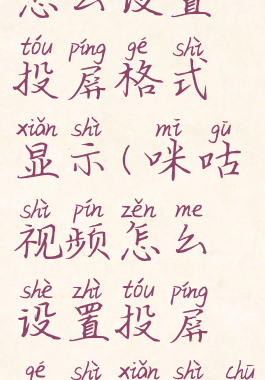 怎么设置
tóu píng gé shì
投屏格式
xiǎn shì mī gū
显示(咪咕
shì pín zěn me
视频怎么
shè zhì tóu píng
设置投屏
gé shì xiǎn shì chū